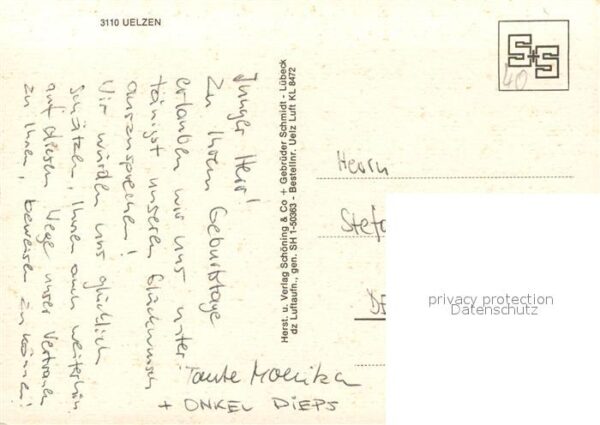 3110 UELZEN
Junger Herr!
Zu Ihrem Geburtstage
erlauben wir uns unter-
tänigst unseren Glückwunsch
auszusprechen!
Wir würden uns glücklich
schätzen, Ihnen auch weiterhin
auf diesem Wege unser Vertrauen
zu Ihnen, beweisen zu können!
Tante Monika
+ ONKEL DIEPS
Herst. u. Verlag Schöning & Co + Gebrüder Schmidt - Lübeck
dz Luftaufn., gen. SH 1-50363 - Bestellnr. Uelz Luft KL 8472
S+S
40
Herrn
Stefa
DE
privacy protection
Datenschutz